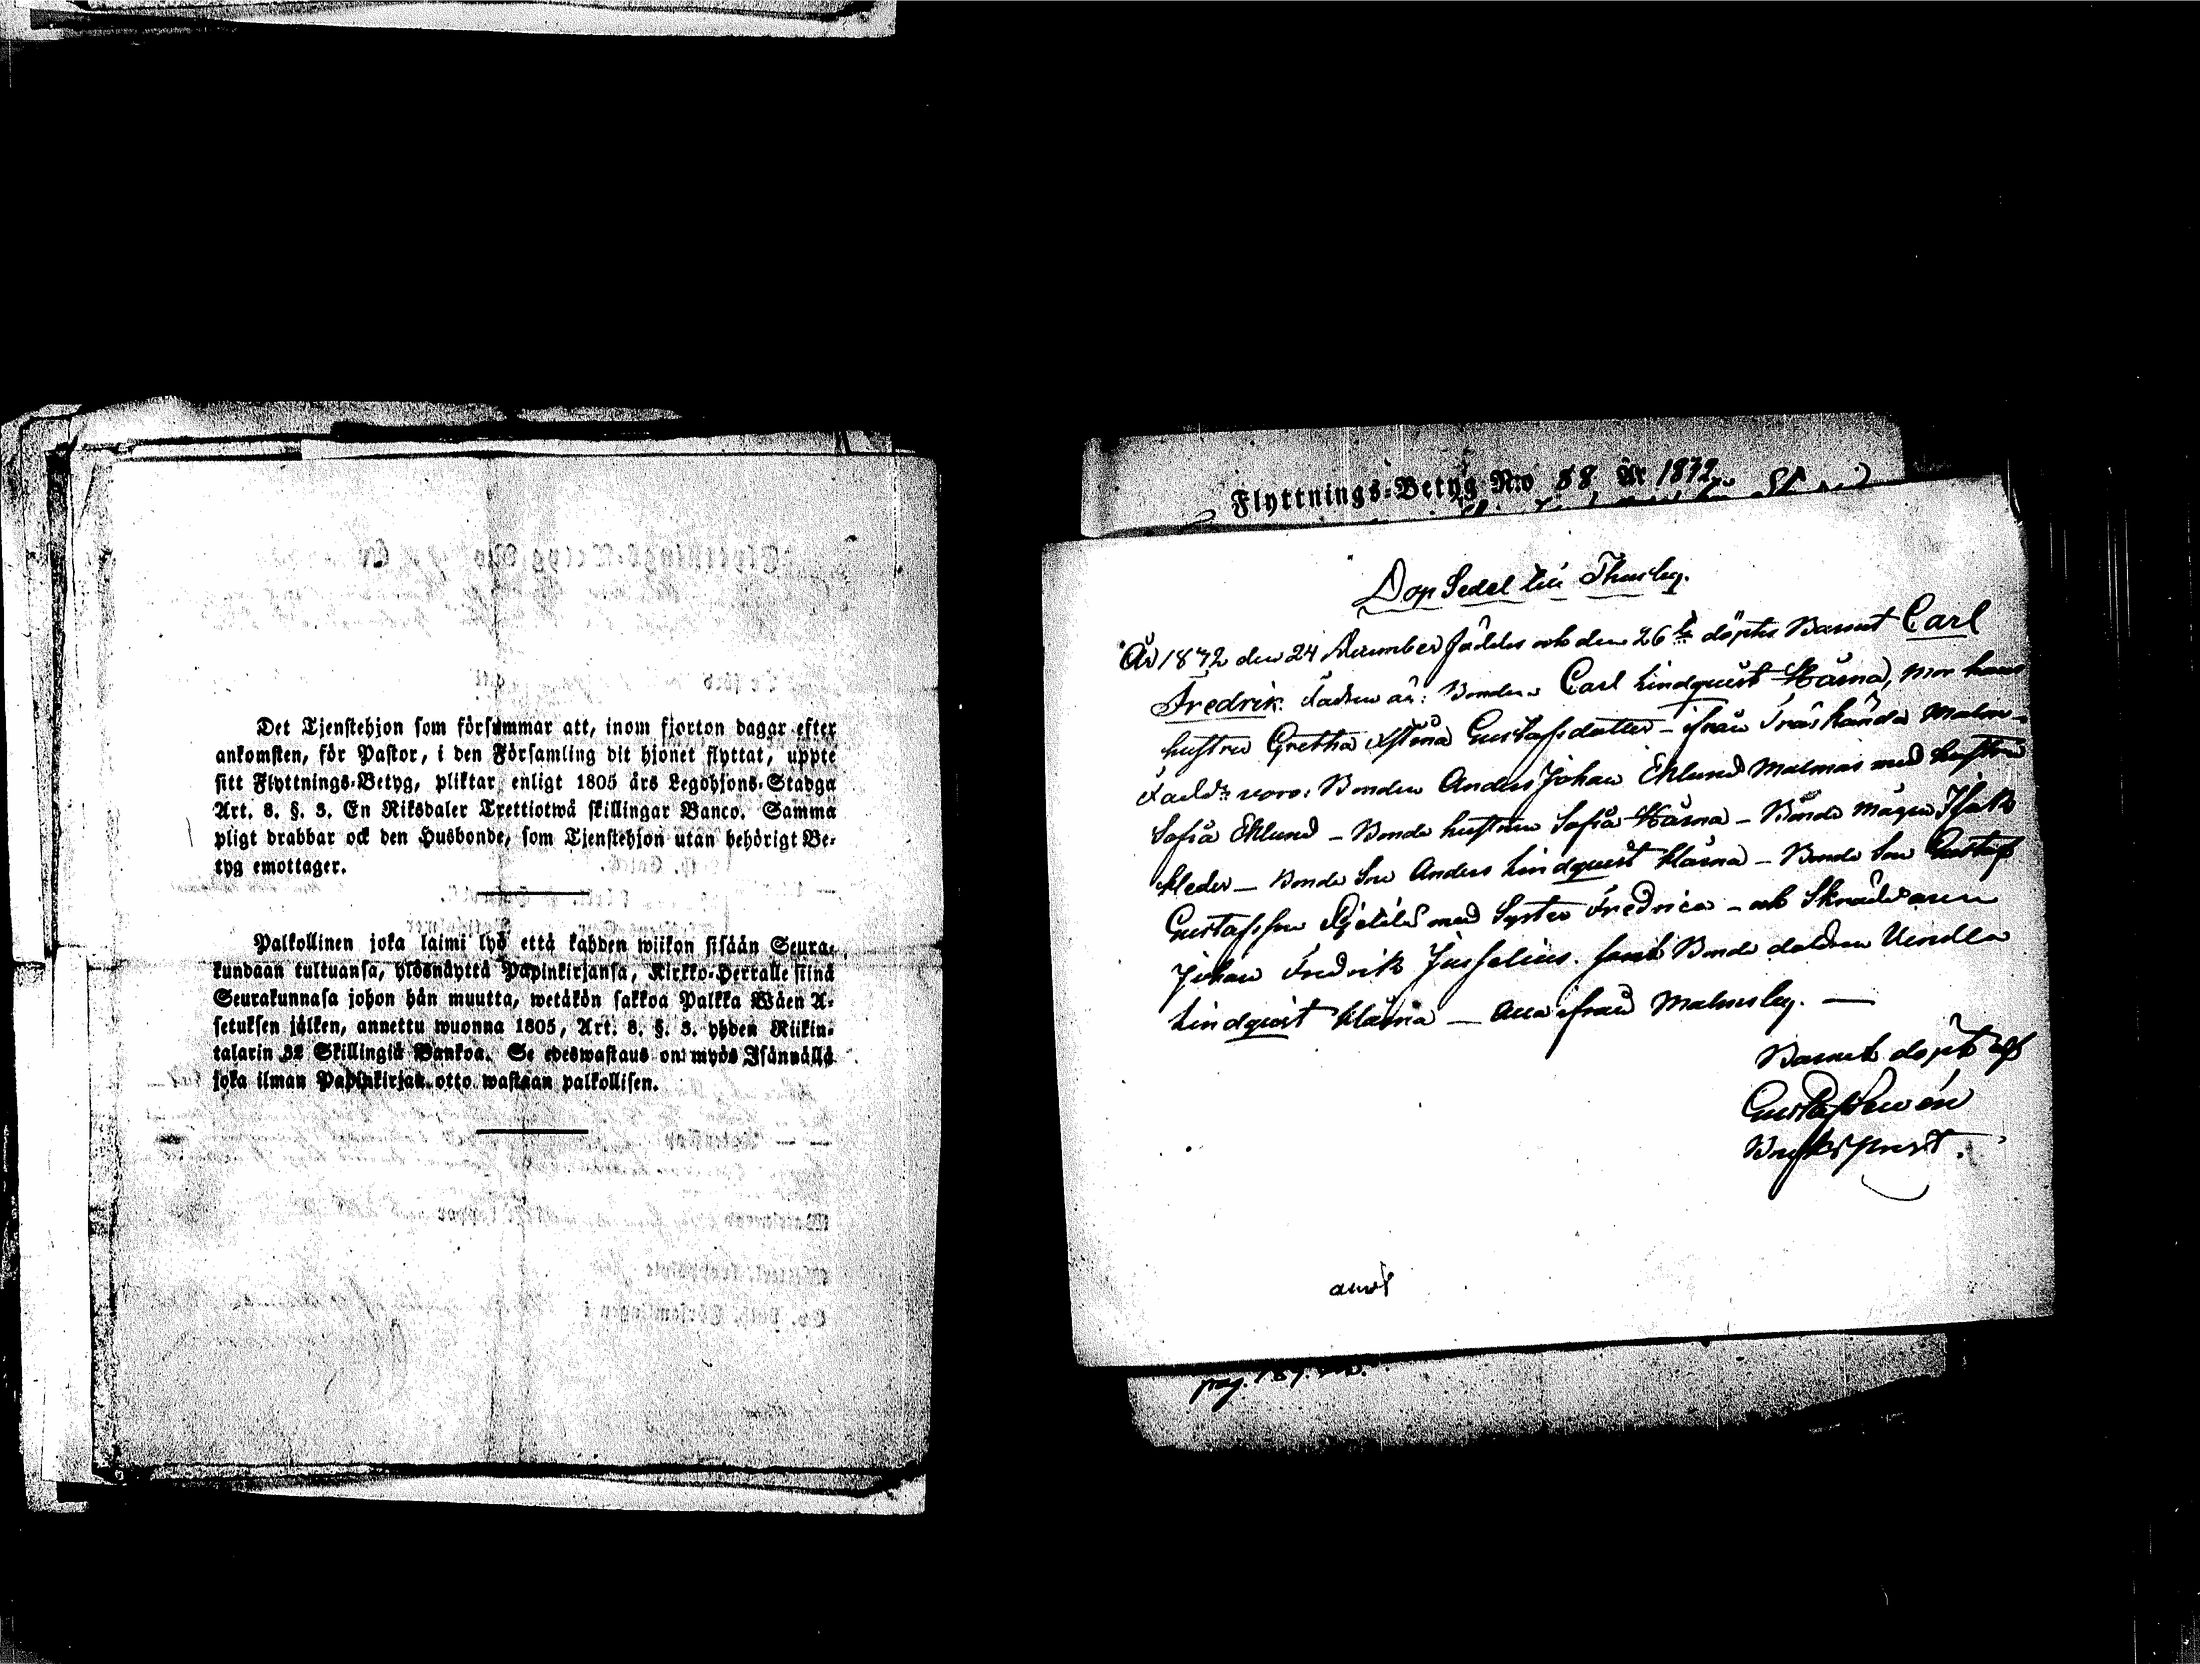 Det Tjenstehjon som försummar att, inom fjorton dagar efter
ankomsten, för Pastor, i den Församling dit hjonet flyttat, uppte
sitt Flyttnings-Betyg, pliktar enligt 1805 års Legohjons-Stadga
Art. 8. §. 3. En Riksdaler Trettiotwå skillingar Banco. Samma
pligt drabbar ock den Husbonde, som Tjenstehjon utan behörigt Be-
tyg emottager.
Palkollinen joka laimi lyö että kahden wiikon sisään Seura-
kundaan tultuansa, ylösnäyttä Papinkirjansa, Kirkko-Herralle siinä
Seurakunnasa johon hän muutta, wetäkön sakkoa Palkka Wäen A-
setuksen jälken, annettu wuonna 1805, Art. 8. §. 3. yhden Riikin-
talarin 32 Skillingiä Bankoa. Se edeswastaus on myös Isännällä
joka ilman Papinkirjan otto wastaan palkollisen.
Flyttnings-Betyg N:o 58 År 1872
Dop Sedel till Thusby.
År 1872 den 24 December föddes och den 26te döptes Barnet Carl
Fredrik. Fadren är: Bonden Carl Lindquist Klärna, Mor hans
hustru Gretha Stina Gustafsdotter - ifrån Träskända Malm-
Fadd:r voro: Bonden Anders Johan Eklund Malmas med hustru
Sofia Eklund - Bonde hustrun Sofia Klärna - Bonde mågen Isak
Kleder - Bonde Son Anders Lindquist Klärna - Bonde Son Gustaf
Gustafsson med Syster Fredrica - och Skräddaren
Johan Fredrik Jusselius. samt Bonde dottren Vendla
Lindquist Klärna - alla ifrån Malmsby. -
Barnet döpt af
Gustaf
Brukspred.
pag. 187.